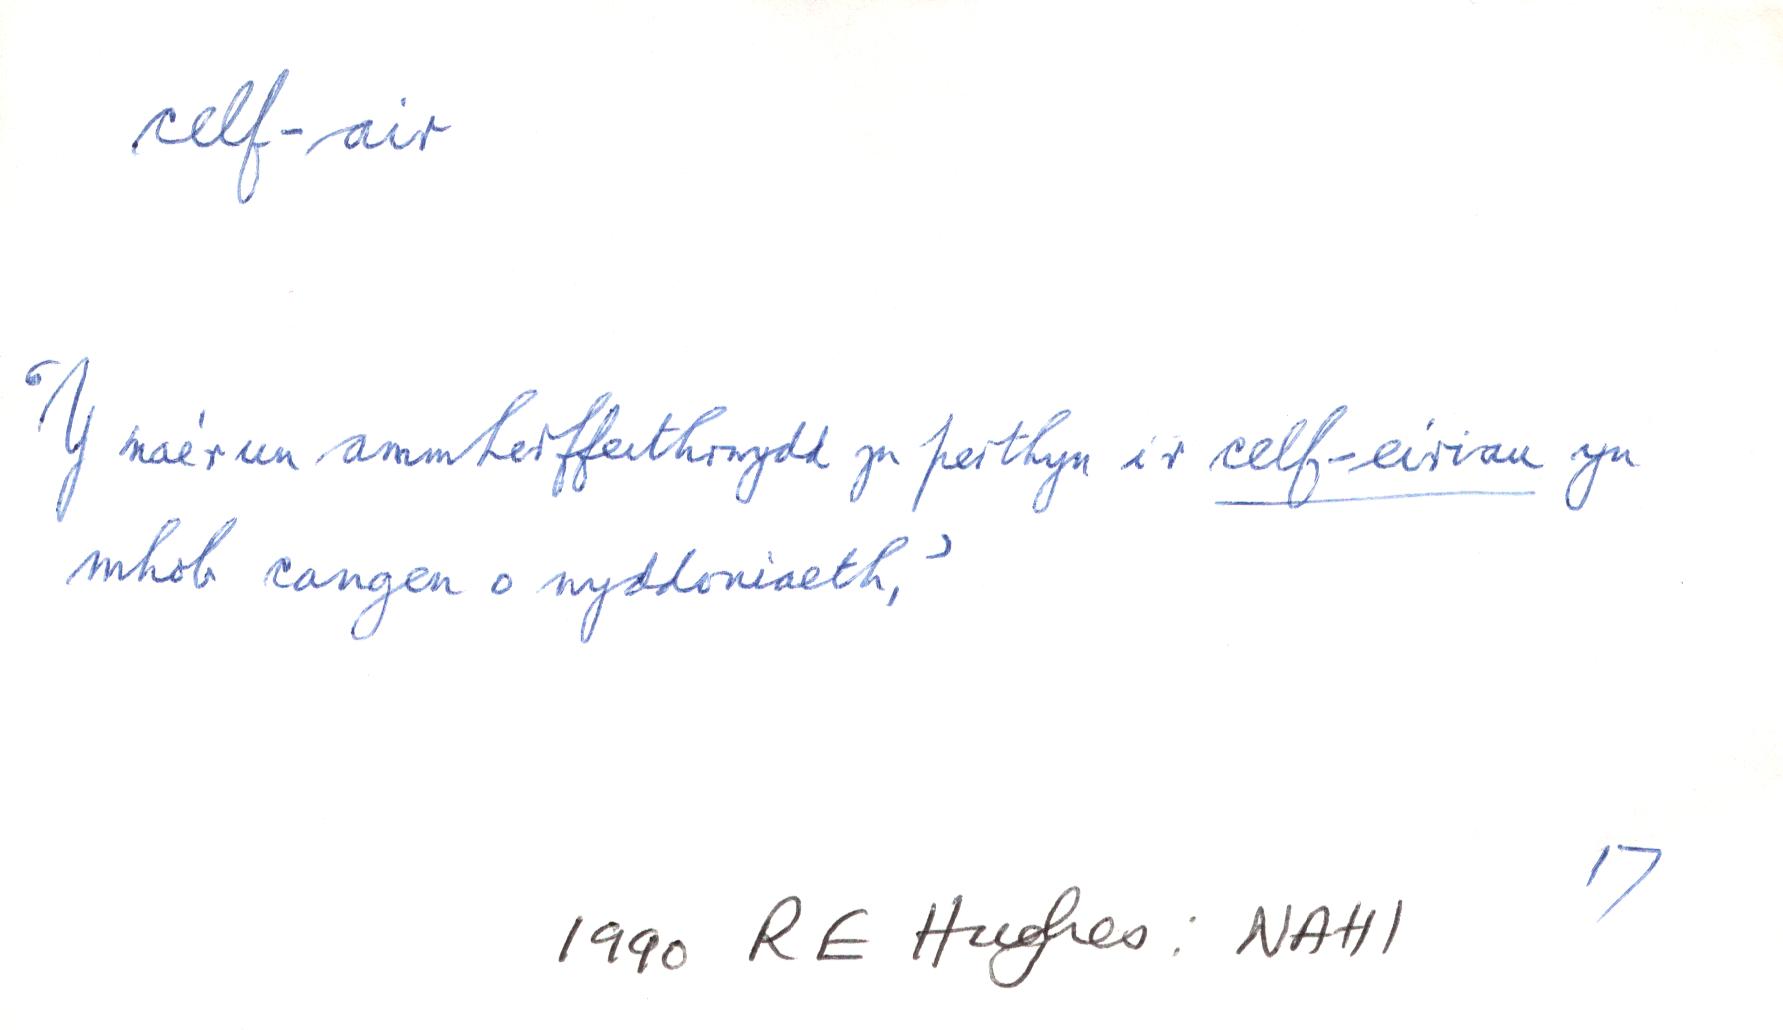 celf-air
‘Y mae'r un ammherffeithrwydd yn perthyn i'r celf-eiriau yn
mhob cangen o wyddoniaeth,’
17
1990 R E Hughes: NAHI